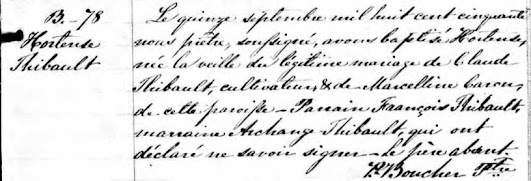 B. - 78
Hortense
Thibault
Le quinze septembre mil huit cent cinquante
nous prêtre, soussigné, avons baptisé Hortense,
née la veille du légitime mariage de Claude
Thibault, cultivateur, & de Marcelline Caron,
de cette paroisse - Parrain François Thibault,
marraine Archange Thibault, qui ont
déclaré ne savoir signer - le père absent.
Boucher Ptre